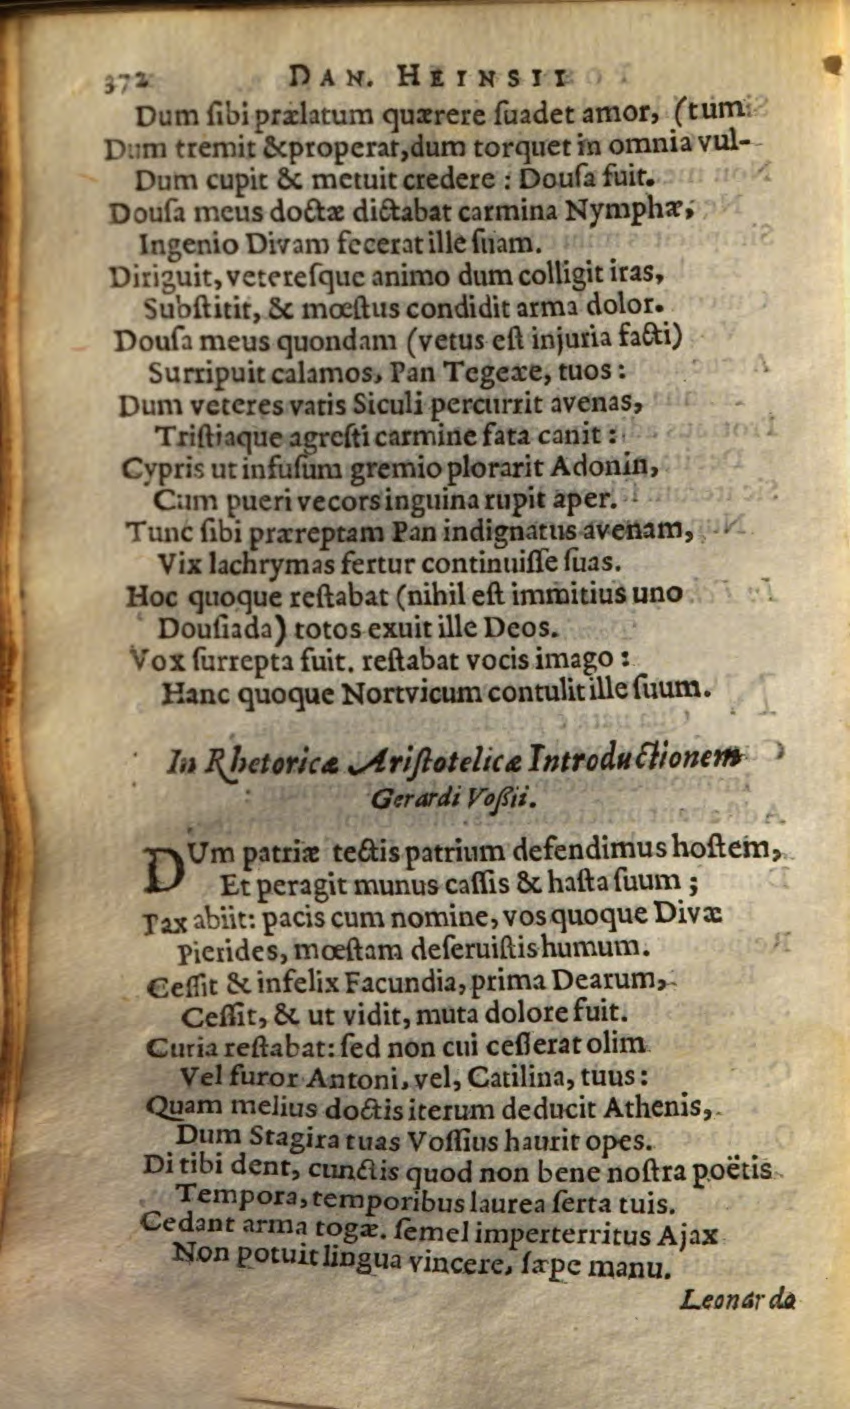 372 DAN. HEINSII
Dum ſibi prælatum quærere ſuadet amor, (tum
Dum tremit &properat,dum torquet in omnia vul-
Dum cupit & metuit credere : Douſa fuit.
Douſa meus doctæ dictabat carmina Nymphæ,
Ingenio Divam fecerat ille ſuam.
Diriguit, vetereſque animo dum colligit iras,
Subſtitit, & mœſtus condidit arma dolor.
Douſa meus quondam (vetus eſt injuria facti)
Surripuit calamos, Pan Tegeæe, tuos :
Dum veteres vatis Siculi percurrit avenas,
Triſtiaque agreſti carmine fata canit :
Cypris ut infuſum gremio plorarit Adonin,
Cum pueri vecors inguina rupit aper.
Tunc ſibi præreptam Pan indignatus avenam,
Vix lachrymas fertur continuiſſe ſuas.
Hoc quoque reſtabat (nihil eſt immitius uno
Douſiada) totos exuit ille Deos.
Vox ſurrepta fuit. reſtabat vocis imago :
Hanc quoque Nortvicum contulit ille ſuum.
In Rhetoricæ Ariſtotelicæ Introductionem
Gerardi Voßii.
DUm patriæ tectis patrium defendimus hoſtem,
Et peragit munus caſſis & haſta ſuum ;
Pax abiit: pacis cum nomine, vos quoque Divæ
Pierides, mœſtam deſeruiſtis humum.
Ceſſit & infelix Facundia, prima Dearum,
Ceſſit, & ut vidit, muta dolore fuit.
Curia reſtabat: ſed non cui ceſſerat olim
Vel furor Antoni, vel, Catilina, tuus :
Quam melius doctis iterum deducit Athenis,
Dum Stagira tuas Voſſius haurit opes.
Di tibi dent, cunctis quod non bene noſtra poëtis
Tempora, temporibus laurea ſerta tuis.
Cedant arma togæ. ſemel imperterritus Ajax
Non potuit lingua vincere, ſæpe manu.
Leonardo